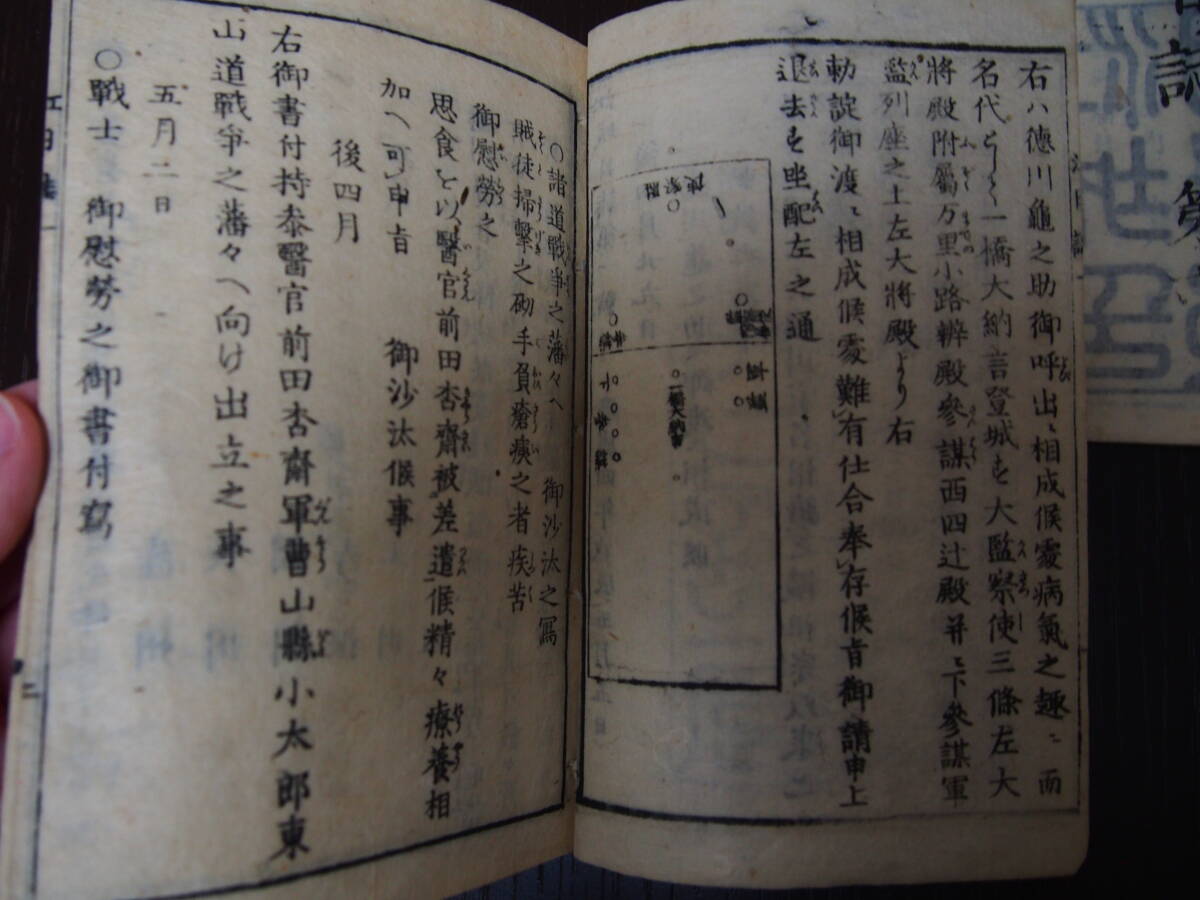 右ハ徳川龜之助御呼出ニ相成候處病氣之趣ニ而
名代として一橋大納言登城も大監察使三條左大
將殿附屬万里小路辨殿參謀西四辻殿并ニ下參謀軍
監列座之上左大將殿より右
勅諚御渡ニ相成候處難有仕合奉存候旨御請申上
退去も坐配左之通
一橋大納言
○諸道戰爭之藩々へ 御沙汰之寫
賊徒掃擊之砌手負瘡痍之者疾苦
御慰勞之
思食を以醫官前田杏齋被差遣候精々療養相
加へ可申旨 御沙汰候事
後四月
右御書付持泰醫官前田杏齋軍曹山縣小太郎東
山道戰爭之藩々へ向け出立之事
五月二日
○戰士 御慰勞之御書付寫